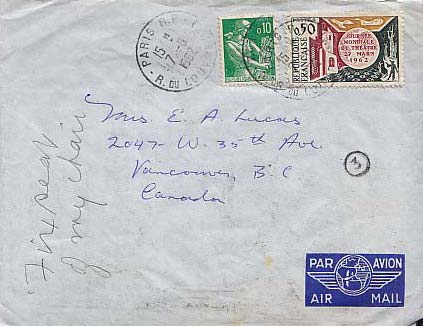 PARIS
15 H
1962
R. DU LOUVRE
0,10
0,50
REPUBLIQUE FRANÇAISE
JOURNÉE
MONDIALE
DU THÉÂTRE
27 MARS
1962
Mrs. E. A. Lucas
2047 - W. 35th Ave.
Vancouver, B C
Canada
3
of my chair
PAR AVION
AIR MAIL